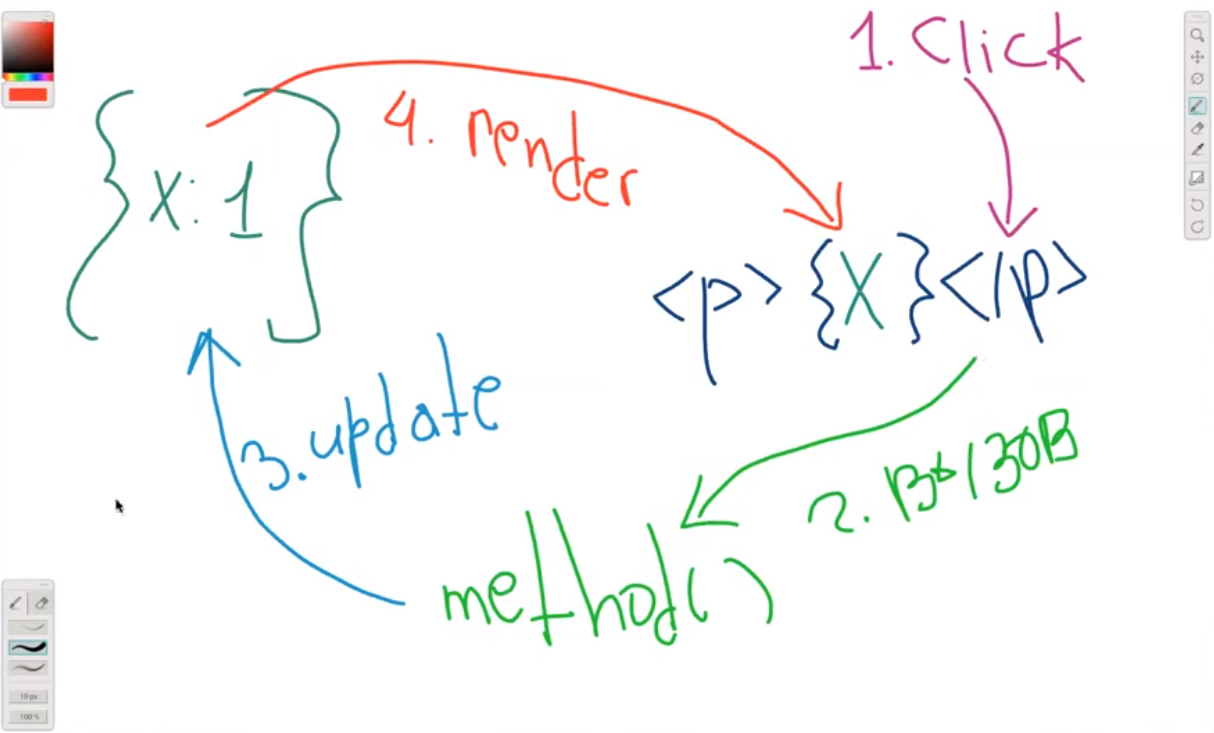 1. Click
4. render
{ x: 1 }
<p> {x} </p>
3. update
2. вызов
method( )
10 px
100 %